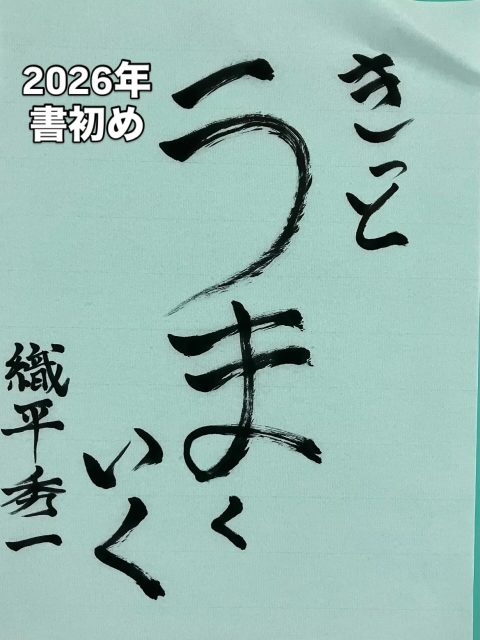 2026年
書初め
きっと
うまく
いく
織平秀一